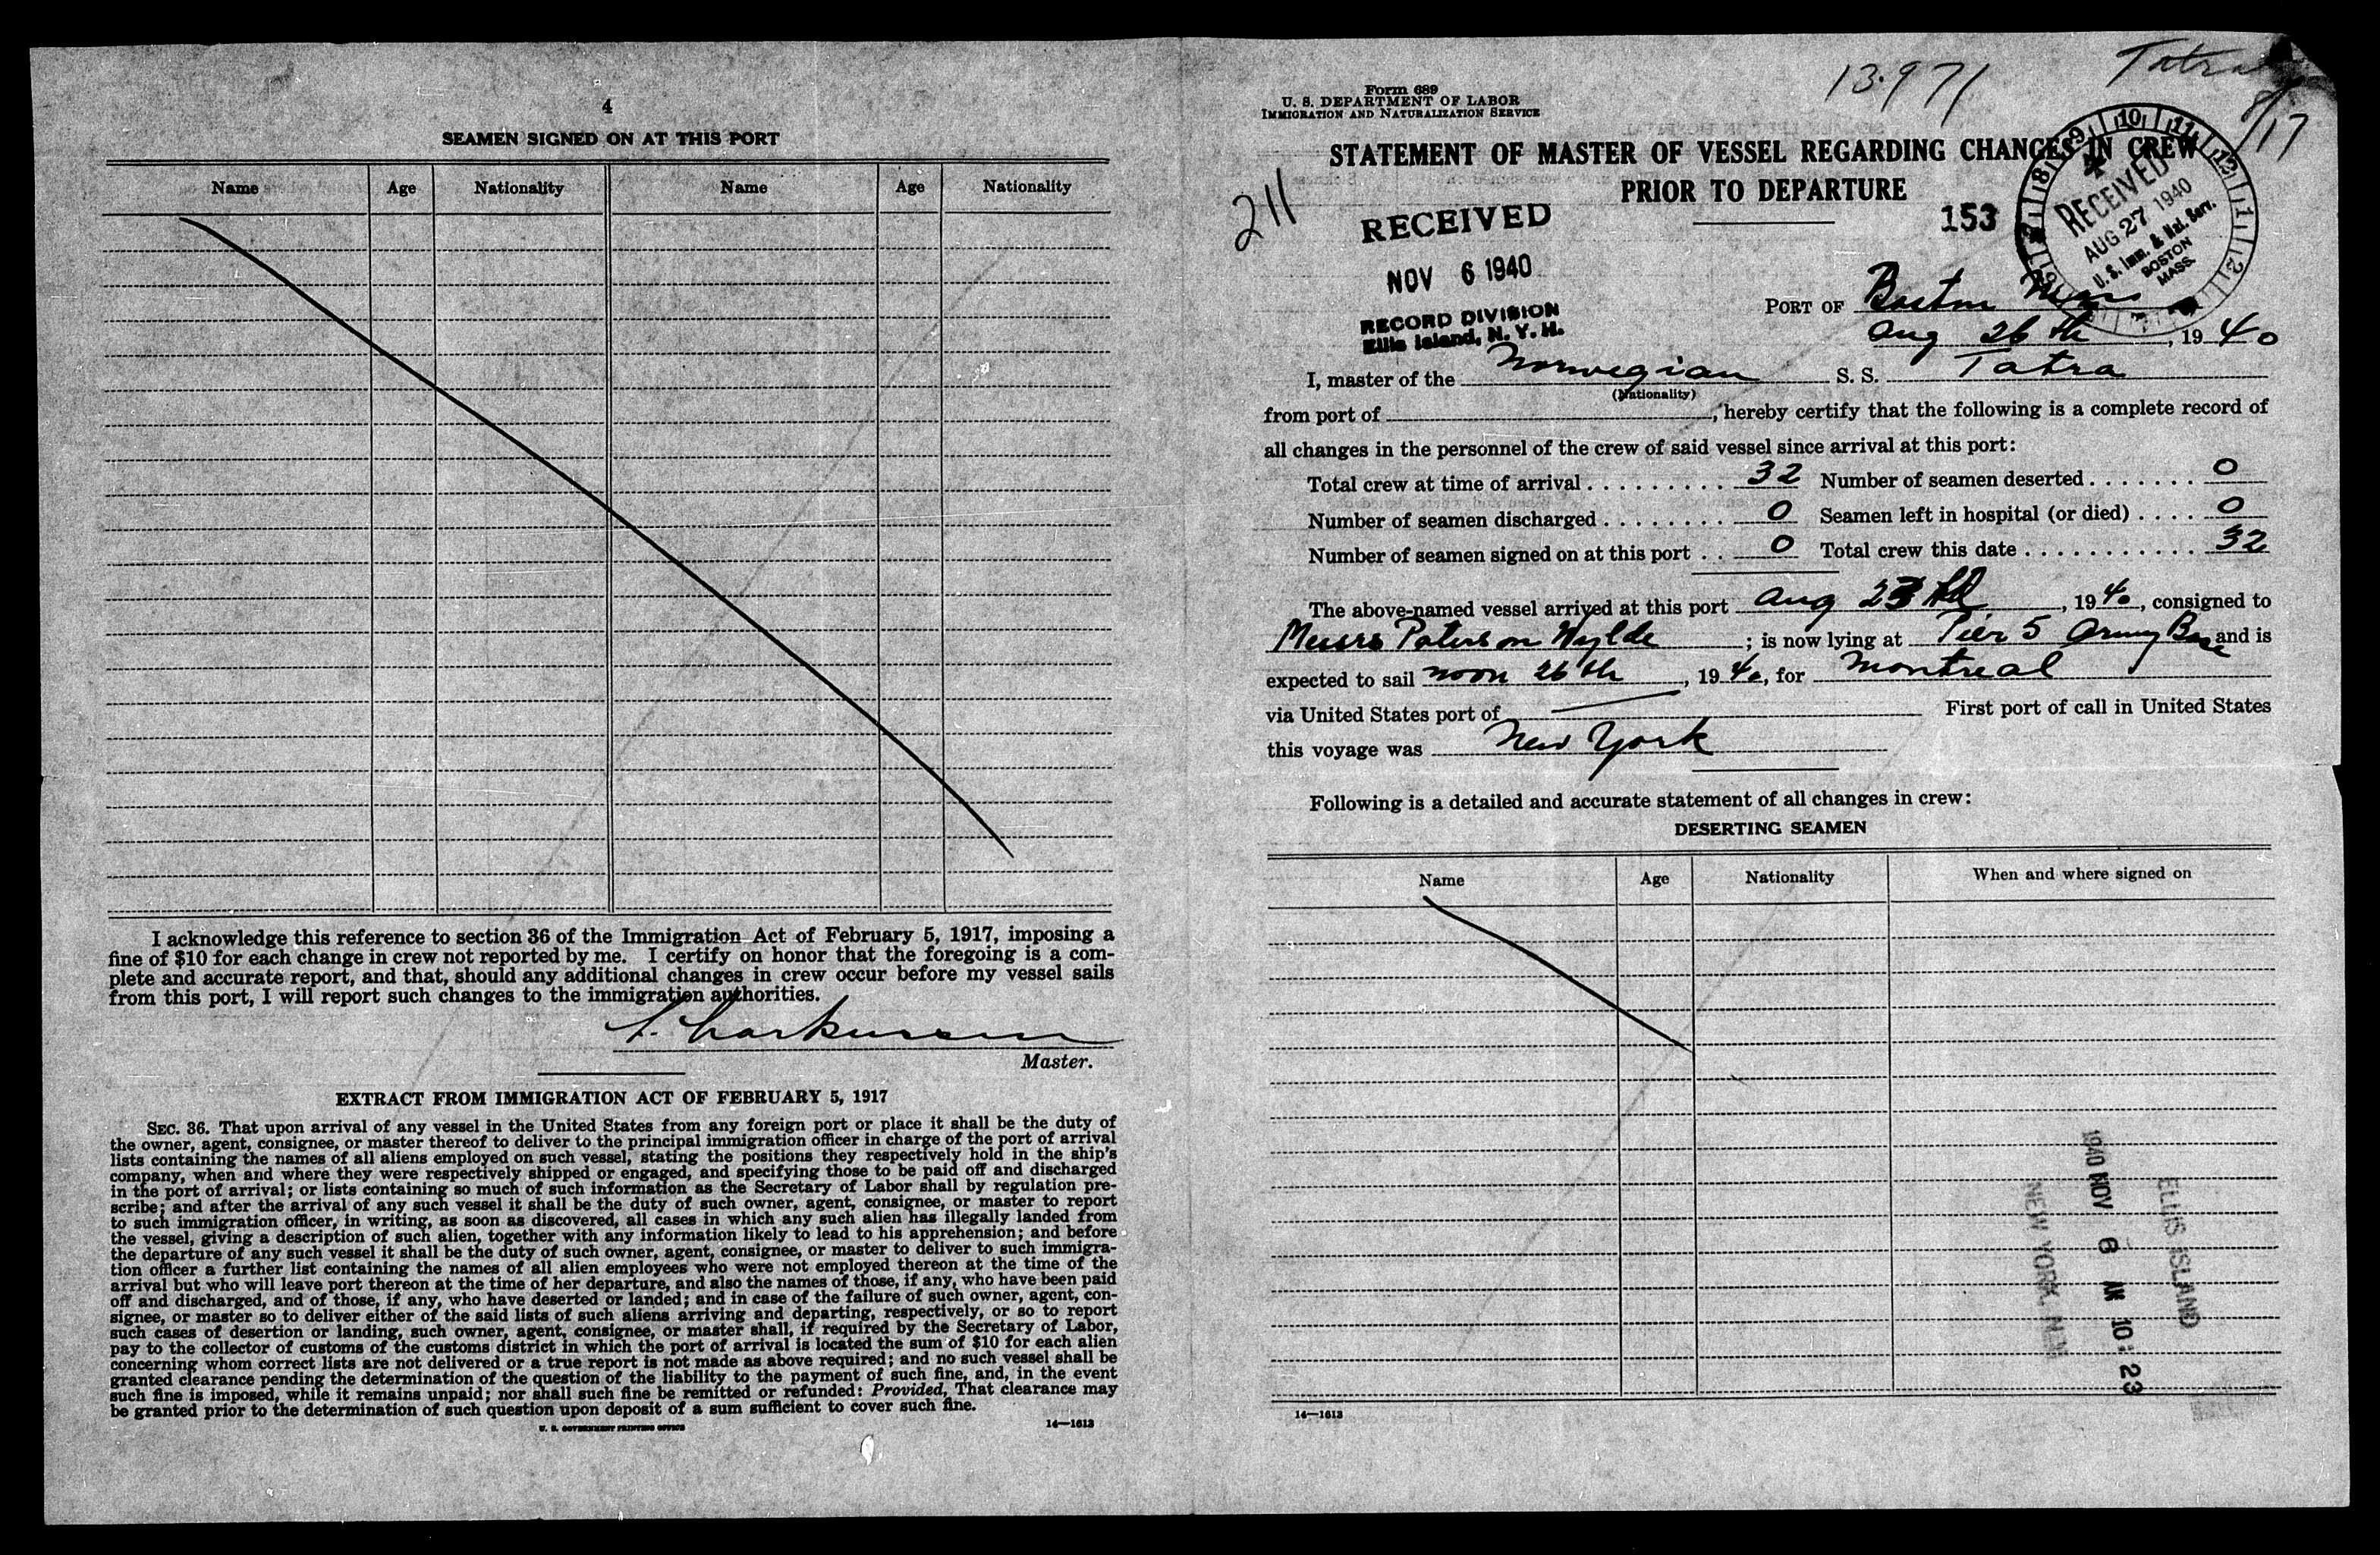 4
SEAMEN SIGNED ON AT THIS PORT
Name Age Nationality Name Age Nationality
I acknowledge this reference to section 36 of the Immigration Act of February 5, 1917, imposing a
fine of $10 for each change in crew not reported by me. I certify on honor that the foregoing is a com-
plete and accurate report, and that, should any additional changes in crew occur before my vessel sails
from this port, I will report such changes to the immigration authorities.
Master.
EXTRACT FROM IMMIGRATION ACT OF FEBRUARY 5, 1917
SEC. 36. That upon arrival of any vessel in the United States from any foreign port or place it shall be the duty of
the owner, agent, consignee, or master thereof to deliver to the principal immigration officer in charge of the port of arrival
lists containing the names of all aliens employed on such vessel, stating the positions they respectively hold in the ship's
company, when and where they were respectively shipped or engaged, and specifying those to be paid off and discharged
in the port of arrival; or lists containing so much of such information as the Secretary of Labor shall by regulation pre-
scribe; and after the arrival of any such vessel it shall be the duty of such owner, agent, consignee, or master to report
to such immigration officer, in writing, as soon as discovered, all cases in which any such alien has illegally landed from
the vessel, giving a description of such alien, together with any information likely to lead to his apprehension; and before
the departure of any such vessel it shall be the duty of such owner, agent, consignee, or master to deliver to such immigra-
tion officer a further list containing the names of all alien employees who were not employed thereon at the time of the
arrival but who will leave port thereon at the time of her departure, and also the names of those, if any, who have been paid
off and discharged, and of those, if any, who have deserted or landed; and in case of the failure of such owner, agent, con-
signee, or master so to deliver either of the said lists of such aliens arriving and departing, respectively, or so to report
such cases of desertion or landing, such owner, agent, consignee, or master shall, if required by the Secretary of Labor,
pay to the collector of customs of the customs district in which the port of arrival is located the sum of $10 for each alien
concerning whom correct lists are not delivered or a true report is not made as above required; and no such vessel shall be
granted clearance pending the determination of the question of the liability to the payment of such fine, and, in the event
such fine is imposed, while it remains unpaid; nor shall such fine be remitted or refunded: Provided, That clearance may
be granted prior to the determination of such question upon deposit of a sum sufficient to cover such fine.
U. S. GOVERNMENT PRINTING OFFICE 14—1613
13971 Tatra
8/17
Form 689
U. S. DEPARTMENT OF LABOR
IMMIGRATION AND NATURALIZATION SERVICE
STATEMENT OF MASTER OF VESSEL REGARDING CHANGES IN CREW
PRIOR TO DEPARTURE
211
153
RECEIVED
NOV 6 1940
RECORD DIVISION
Ellis Island, N. Y. H.
8 9 10 11 12 1 2
RECEIVED
AUG 27 1940
U. S. Imm. & Nat. Serv.
BOSTON
MASS.
PORT OF Boston Mass
Aug 26 th, 1940
I, master of the Norwegian S. S. Tatra
(Nationality)
from port of , hereby certify that the following is a complete record of
all changes in the personnel of the crew of said vessel since arrival at this port:
Total crew at time of arrival . . . . . . . . . 32 Number of seamen deserted . . . . . . . 0
Number of seamen discharged . . . . . . . . 0 Seamen left in hospital (or died) . . . . 0
Number of seamen signed on at this port . . 0 Total crew this date . . . . . . . . . . . . 32
The above-named vessel arrived at this port Aug 23 , 1940, consigned to
Messrs Paterson Wylde ; is now lying at Pier 5 Army Base and is
expected to sail noon 26 th, 1940, for Montreal
via United States port of First port of call in United States
this voyage was New York
Following is a detailed and accurate statement of all changes in crew:
DESERTING SEAMEN
Name Age Nationality When and where signed on
ELLIS ISLAND
1940 NOV 6 AM 10:23
NEW YORK
14—1613